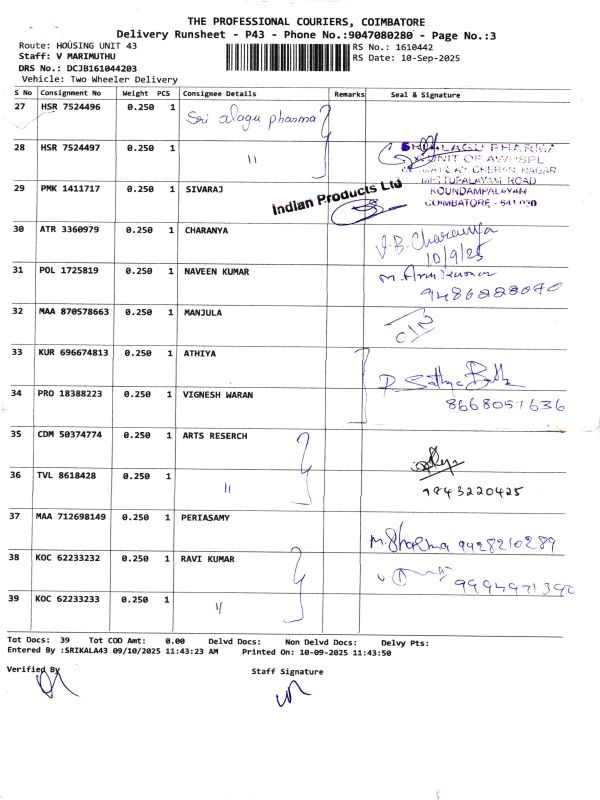 THE PROFESSIONAL COURIERS, COIMBATORE
Delivery Runsheet - P43 - Phone No.:9047080280 - Page No.:3
Route: HOUSING UNIT 43
RS No.: 1610442
Staff: V MARIMUTHU
RS Date: 10-Sep-2025
DRS No.: DCJB161044203
Vehicle: Two Wheeler Delivery
S No Consignment No Weight PCS Consignee Details Remarks Seal & Signature
27 HSR 7524496 0.250 1 Sri alagu pharma
28 HSR 7524497 0.250 1 "
SRI ALAGU PHARMA
UNIT OF
CHERAN NAGAR
METTUPALAYAM ROAD
KOUNDAMPALAYAM
COIMBATORE - 641 030
29 PMK 1411717 0.250 1 SIVARAJ Indian Products Ltd
30 ATR 3360979 0.250 1 CHARANYA
10/9/25
31 POL 1725819 0.250 1 NAVEEN KUMAR
32 MAA 870578663 0.250 1 MANJULA
33 KUR 696674813 0.250 1 ATHIYA
34 PRO 18388223 0.250 1 VIGNESH WARAN 8668051636
35 CDM 50374774 0.250 1 ARTS RESERCH
36 TVL 8618428 0.250 1 " 9843220425
37 MAA 712698149 0.250 1 PERIASAMY 9428210289
38 KOC 62233232 0.250 1 RAVI KUMAR 9994971390
39 KOC 62233233 0.250 1 "
Tot Docs: 39 Tot COD Amt: 0.00 Delvd Docs: Non Delvd Docs: Delvy Pts:
Entered By :SRIKALA43 09/10/2025 11:43:23 AM Printed On: 10-09-2025 11:43:50
Verified By Staff Signature